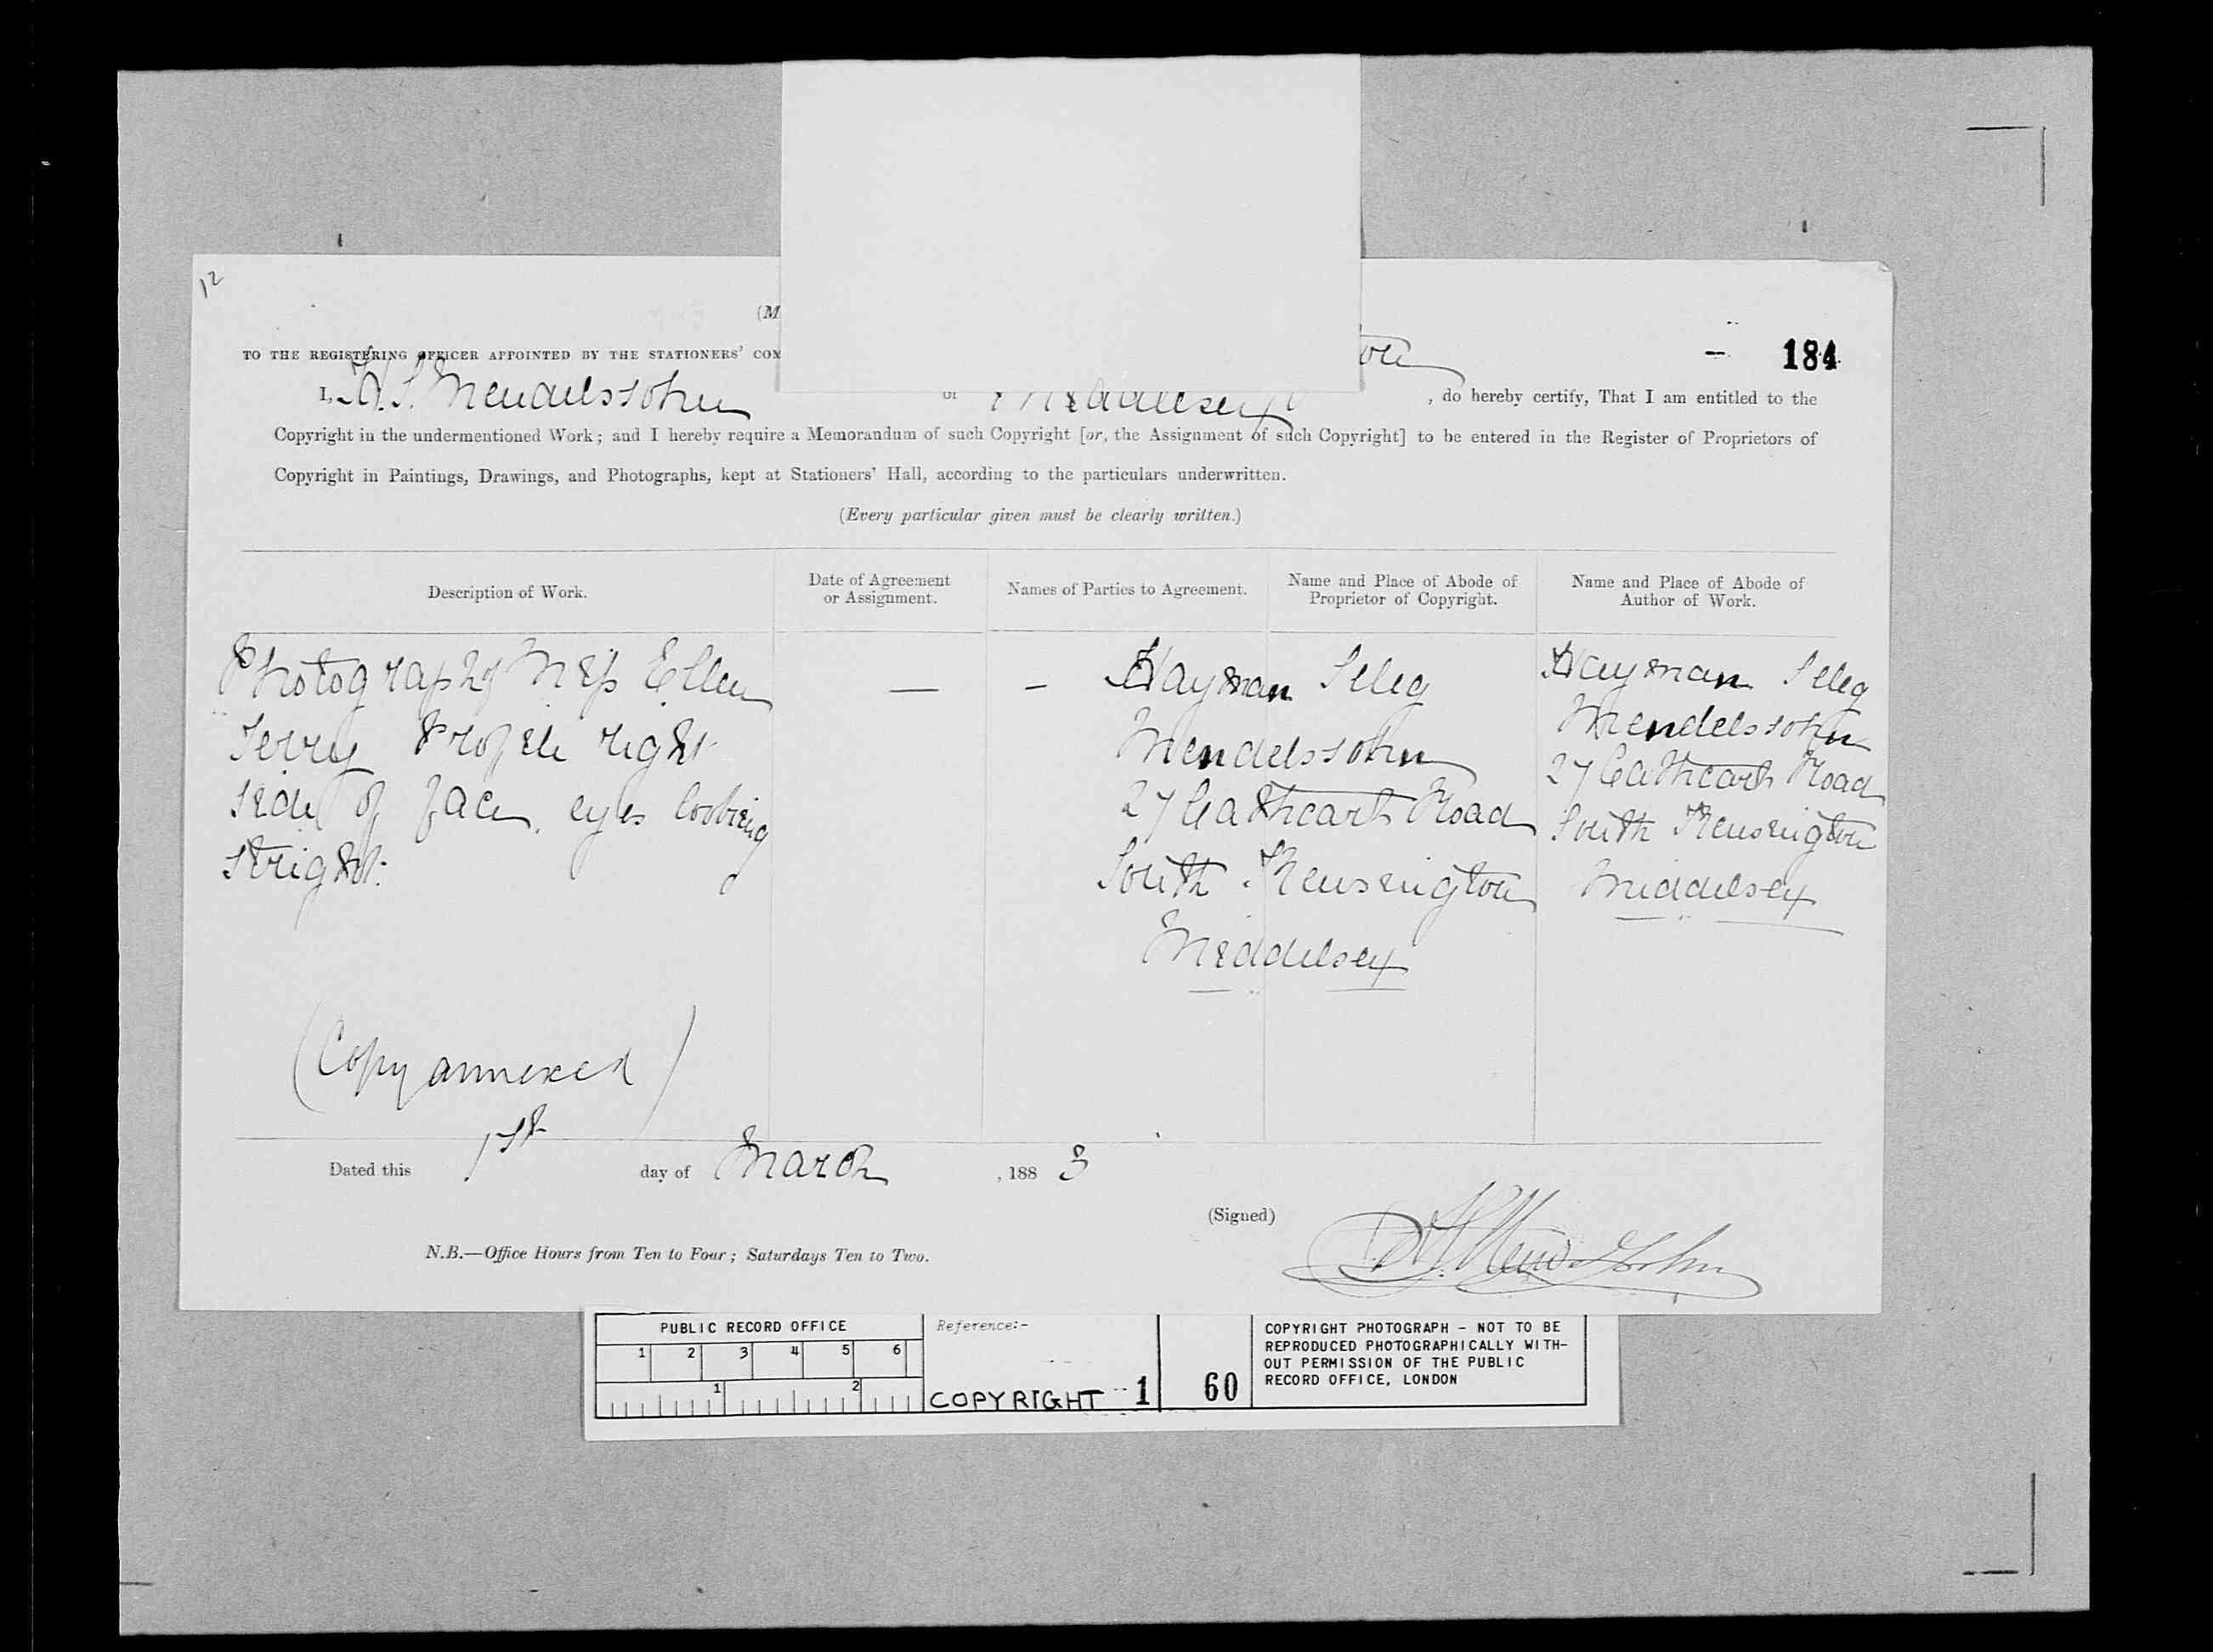 12
(M
TO THE REGISTERING OFFICER APPOINTED BY THE STATIONERS' COM
ton
- 184
I, H. S. Mendelssohn of Middelsex, do hereby certify, That I am entitled to the
Copyright in the undermentioned Work; and I hereby require a Memorandum of such Copyright [or, the Assignment of such Copyright] to be entered in the Register of Proprietors of
Copyright in Paintings, Drawings, and Photographs, kept at Stationers' Hall, according to the particulars underwritten.
(Every particular given must be clearly written.)
Description of Work.
Date of Agreement
or Assignment.
Names of Parties to Agreement.
Name and Place of Abode of
Proprietor of Copyright.
Name and Place of Abode of
Author of Work.
Photograph of Miss Ellen
Terry Profile right
side of face, eyes looking
stright.
(Copy annexed)
—
-
Hayman Seleg
Mendelssohn
27 Cathcart Road
South Kensington
Middelsex
Hayman Seleg
Mendelssohn
27 Cathcart Road
South Kensington
Middelsex
Dated this 1st day of March, 1883
(Signed) H. S. Mendelssohn
N.B.—Office Hours from Ten to Four; Saturdays Ten to Two.
PUBLIC RECORD OFFICE
1 2 3 4 5 6
1 2
Reference:-
COPYRIGHT 1
60
COPYRIGHT PHOTOGRAPH - NOT TO BE
REPRODUCED PHOTOGRAPHICALLY WITH-
OUT PERMISSION OF THE PUBLIC
RECORD OFFICE, LONDON